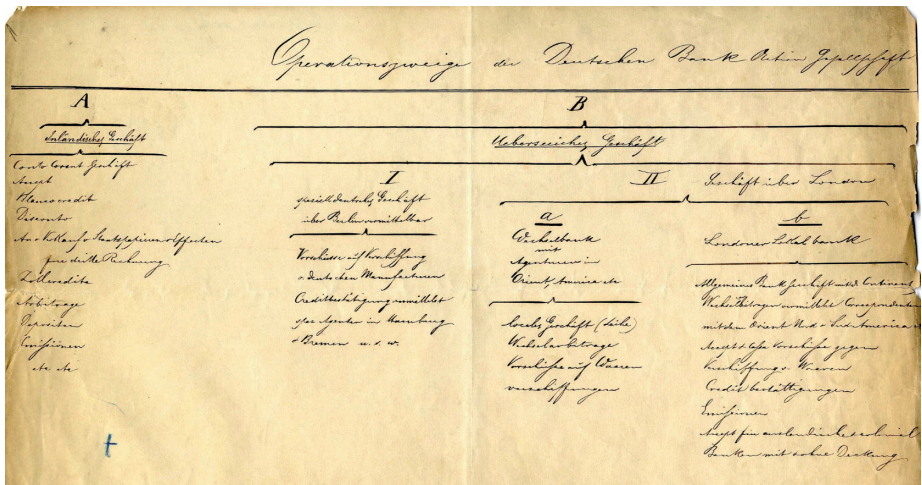 Operationszweige der Deutschen Bank Actien Gesellschaft
A
Inländisches Geschäft
Conto Corent Geschäft
Accept
Blancocredit
Disconto
An & Verkauf v Staatspapieren & Effecten
für dritte Rechnung
Zollcredite
Arbitrage
Depositen
Emissionen
etc etc
B
Ueberseeisches Geschäft
I
speciell deutsches Geschäft
über Berlin vermittelbar
Vorschüsse auf Verschiffung
v. deutschen Manufacturen
Creditbestätigung vermittelst
spec Agenten in Hamburg
& Bremen u. s. w.
II Geschäft über London
a
Wechselbank
mit
Agenturen in
Orient America etc
locales Geschäft
Wechselarbitrage
Vorschüsse auf Waaren
verschiffungen
b
Londoner Lokalbank
Allgemeines Bank Geschäft mit d. Continent
Wechsel vermittelst Correspondenten
mit dem Orient Nord & Süd America
Accept & Vorschüsse gegen
Verschiffung v. Waaren
Credit bestättigungen
Emissionen
Accept für auslandische & colonial
Banken mit & ohne Deckung